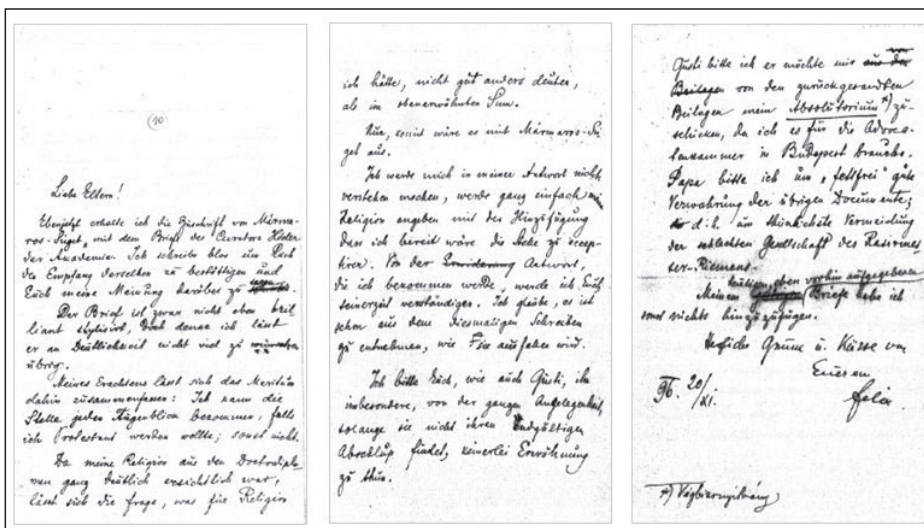 (10)
Liebe Eltern!
Ebenjetzt erhalte ich die Zuschrift von Mármaros-
Sziget, mit dem Brief des Curators
der Akademie. Ich schreibe blos um Euch
den Empfang derselben zu bestättigen und
Euch meine Meinung darüber zu sagen
Der Brief ist zwar nicht eben bril
liant stylisirt, doch lässt
er an Deutlichkeit nicht viel zu wünschen
übrig.
Meines Erachtens lässt sich das Meritum
dahin zusammenfassen: Ich kann die
Stelle jeden Augenblick bekommen, falls
ich Protestant werden wollte; sonst nicht.
Da meine Religion aus den Doctordiplo-
men ganz deutlich ersichtlich war,
lässt sich die Frage, was für Religion
ich hätte, nicht gut anders deuten,
als im obenerwähnten Sinn.
Nun, somit wäre es mit Mármaros-Szi-
get aus.
Ich werde mich in meiner Antwort nichts
verstehen machen, werde ganz einfach meine
Religion angeben mit der Hinzufügung
dass ich bereit wäre die Stelle zu accep-
tiren. Von der Antwort,
die ich bekommen werde, werde ich Euch
seinerzeit verständigen. Ich glaube, es ist
schon aus dem diesmaligen Schreiben
zu entnehmen, wie sie ausfallen wird.
Ich bitte Euch, wie auch Gusti, ihn
insbesondere, von der ganzen Angelegenheit,
solange sie nicht ihren endgültigen
Abschluß findet, keinerlei Erwähnung
zu thun.
Gusti bitte ich er möchte mir aus den
Beilagen von den zurückgesandten
Beilagen mein Absolutorium *) zu-
schicken, da ich es für die Advoca-
tenkammer in Budapest brauche.
Papa bitte ich um "fettfrei" gute
Verwahrung der übrigen Documente;
d.h. um thunlichste Vermeidung
der schlechten Gesellschaft des Rasirmes-
ser-Riemens.
vorhin aufgegebenen
Meinem Briefe habe ich
sonst nichts hinzuzufügen.
Herzliche Grüsse u. Küsse von
Eurem
96. 20/XI. Felix
*) Végbizonyítvány